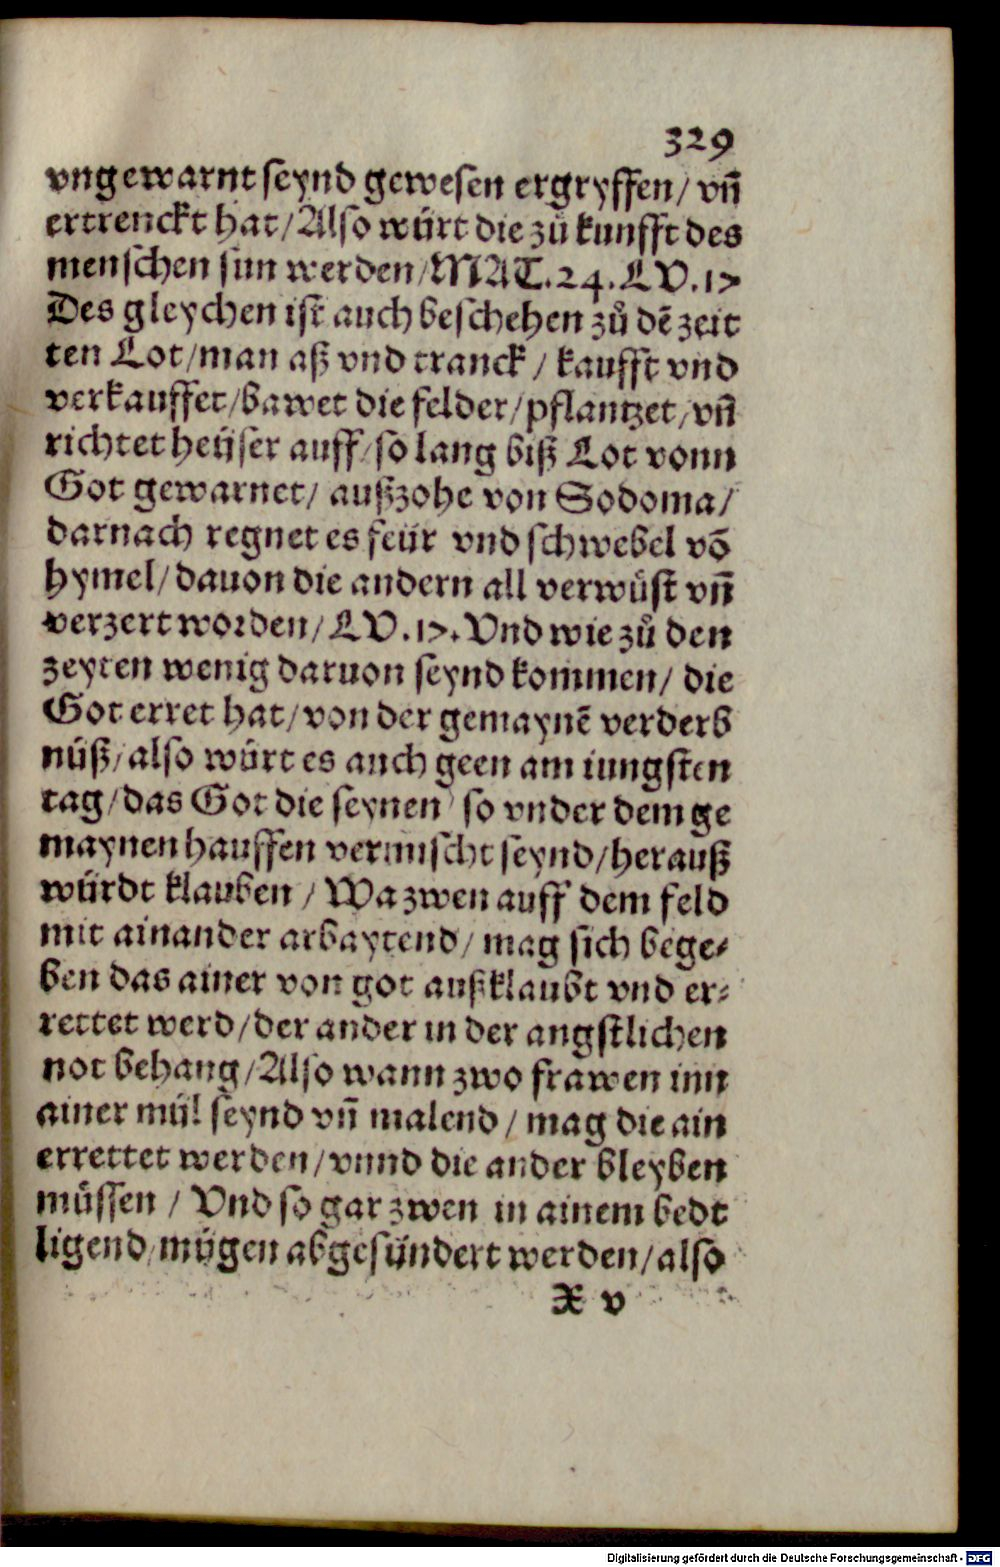 329
vngewarnt seynd gewesen ergryffen/ vn̄
ertrenckt hat/ Also würt die zů kunfft des
menschen sun werden/ MAT. 24. LV. 17
Des gleychen ist auch beschehen zů dē zeit
ten Lot/ man aß vnd tranck / kaufft vnd
verkauffet/ bawet die felder/ pflantzet/ vn̄
richtet heüser auff/ so lang biß Lot vonn
Got gewarnet/ außzohe von Sodoma/
darnach regnet es feür vnd schwebel vō
hymel/ dauon die andern all verwüst vn̄
verzert worden/ LV. 17. Vnd wie zů den
zeyten wenig daruon seynd kommen/ die
Got erret hat/ von der gemaynē verderb
nüß/ also würt es auch geen am iungsten
tag/ das Got die seynen so vnder dem ge
maynen hauffen vermischt seynd/ herauß
würdt klauben / Wa zwen auff dem feld
mit ainander arbaytend/ mag sich bege⸗
ben das ainer von got außklaubt vnd er⸗
rettet werd/ der ander in der angstlichen
not behang/ Also wann zwo frawen inn
ainer müȷl seynd vn̄ malend / mag die ain
errettet werden/ vnnd die ander bleyben
müssen / Vnd so gar zwen in ainem bedt
ligend/ mügen abgesündert werden/ also
X v
Digitalisierung gefördert durch die Deutsche Forschungsgemeinschaft - DFG